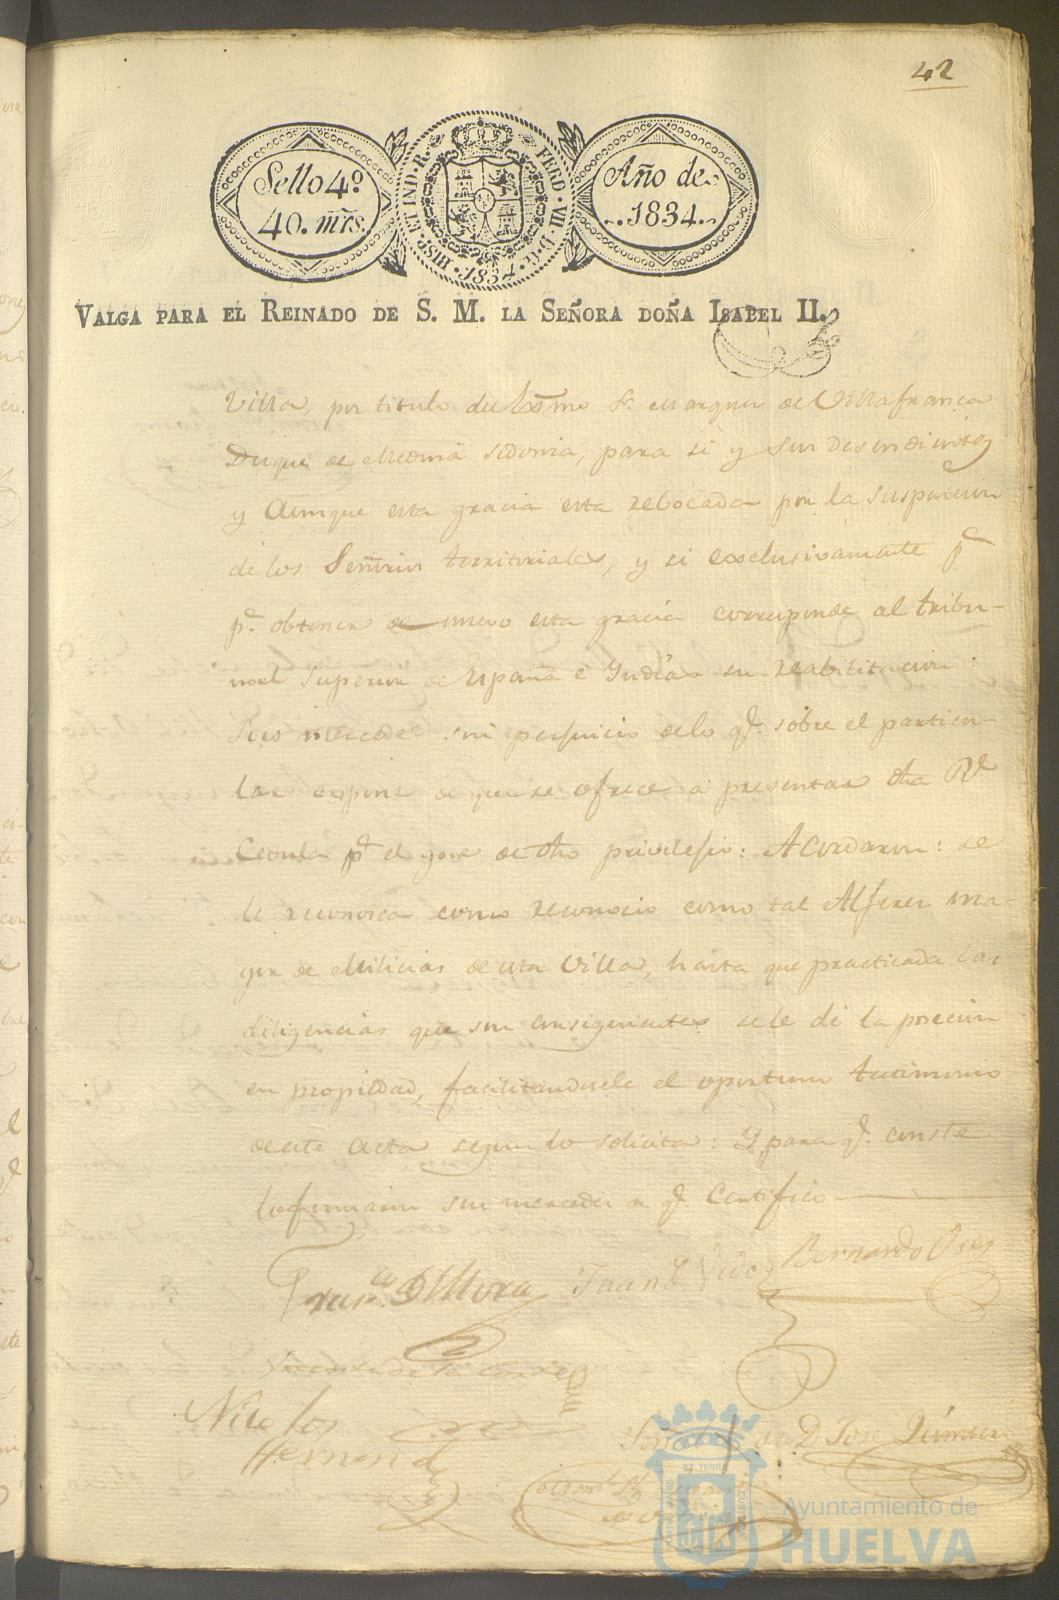 42
Sello 4º
40. mrs.
HISP. ET IND. R. FERD. VII. D. G. 1834.
Año de
1834.
VALGA PARA EL REINADO DE S. M. LA SEÑORA DOÑA ISABEL II.
Villa, por titulo del Exmo Sr. Marques de Villafranca
Duque de Medina Sidonia, para si y sus desendientes
y Aunque esta gracia esta rebocada por la suspension
de los Señorios territoriales, y si exclusivamente pª
pª obtener de nuevo esta gracia corresponde al tribu-
nal Superior de España é Yndias su reabilitacion:
Sus mercedes sin perjuicio de lo qe. sobre el particu-
lar espone de que se ofrece a presentar dha Rl
Cedula pª el gose de dho privilejio: Acordaron: se
le reconosca como reconocio como tal Alferes ma-
yor de Milicias de esta Villa, hasta que practicada las
diligencias que son consiguientes se le dé la posecion
en propiedad, facilitandosele el oportuno testimonio
de este Acta segun lo solicita: Y para qe. conste
lo firmaron sus mercedes de qe. Certifico
Franco. de Mora Juan Vides Bernardo Oses
Vicente de la Corte
Nicolas
Hernand
Señal de D. Jose Quintero
ET TERRAE
Ayuntamiento de
HUELVA